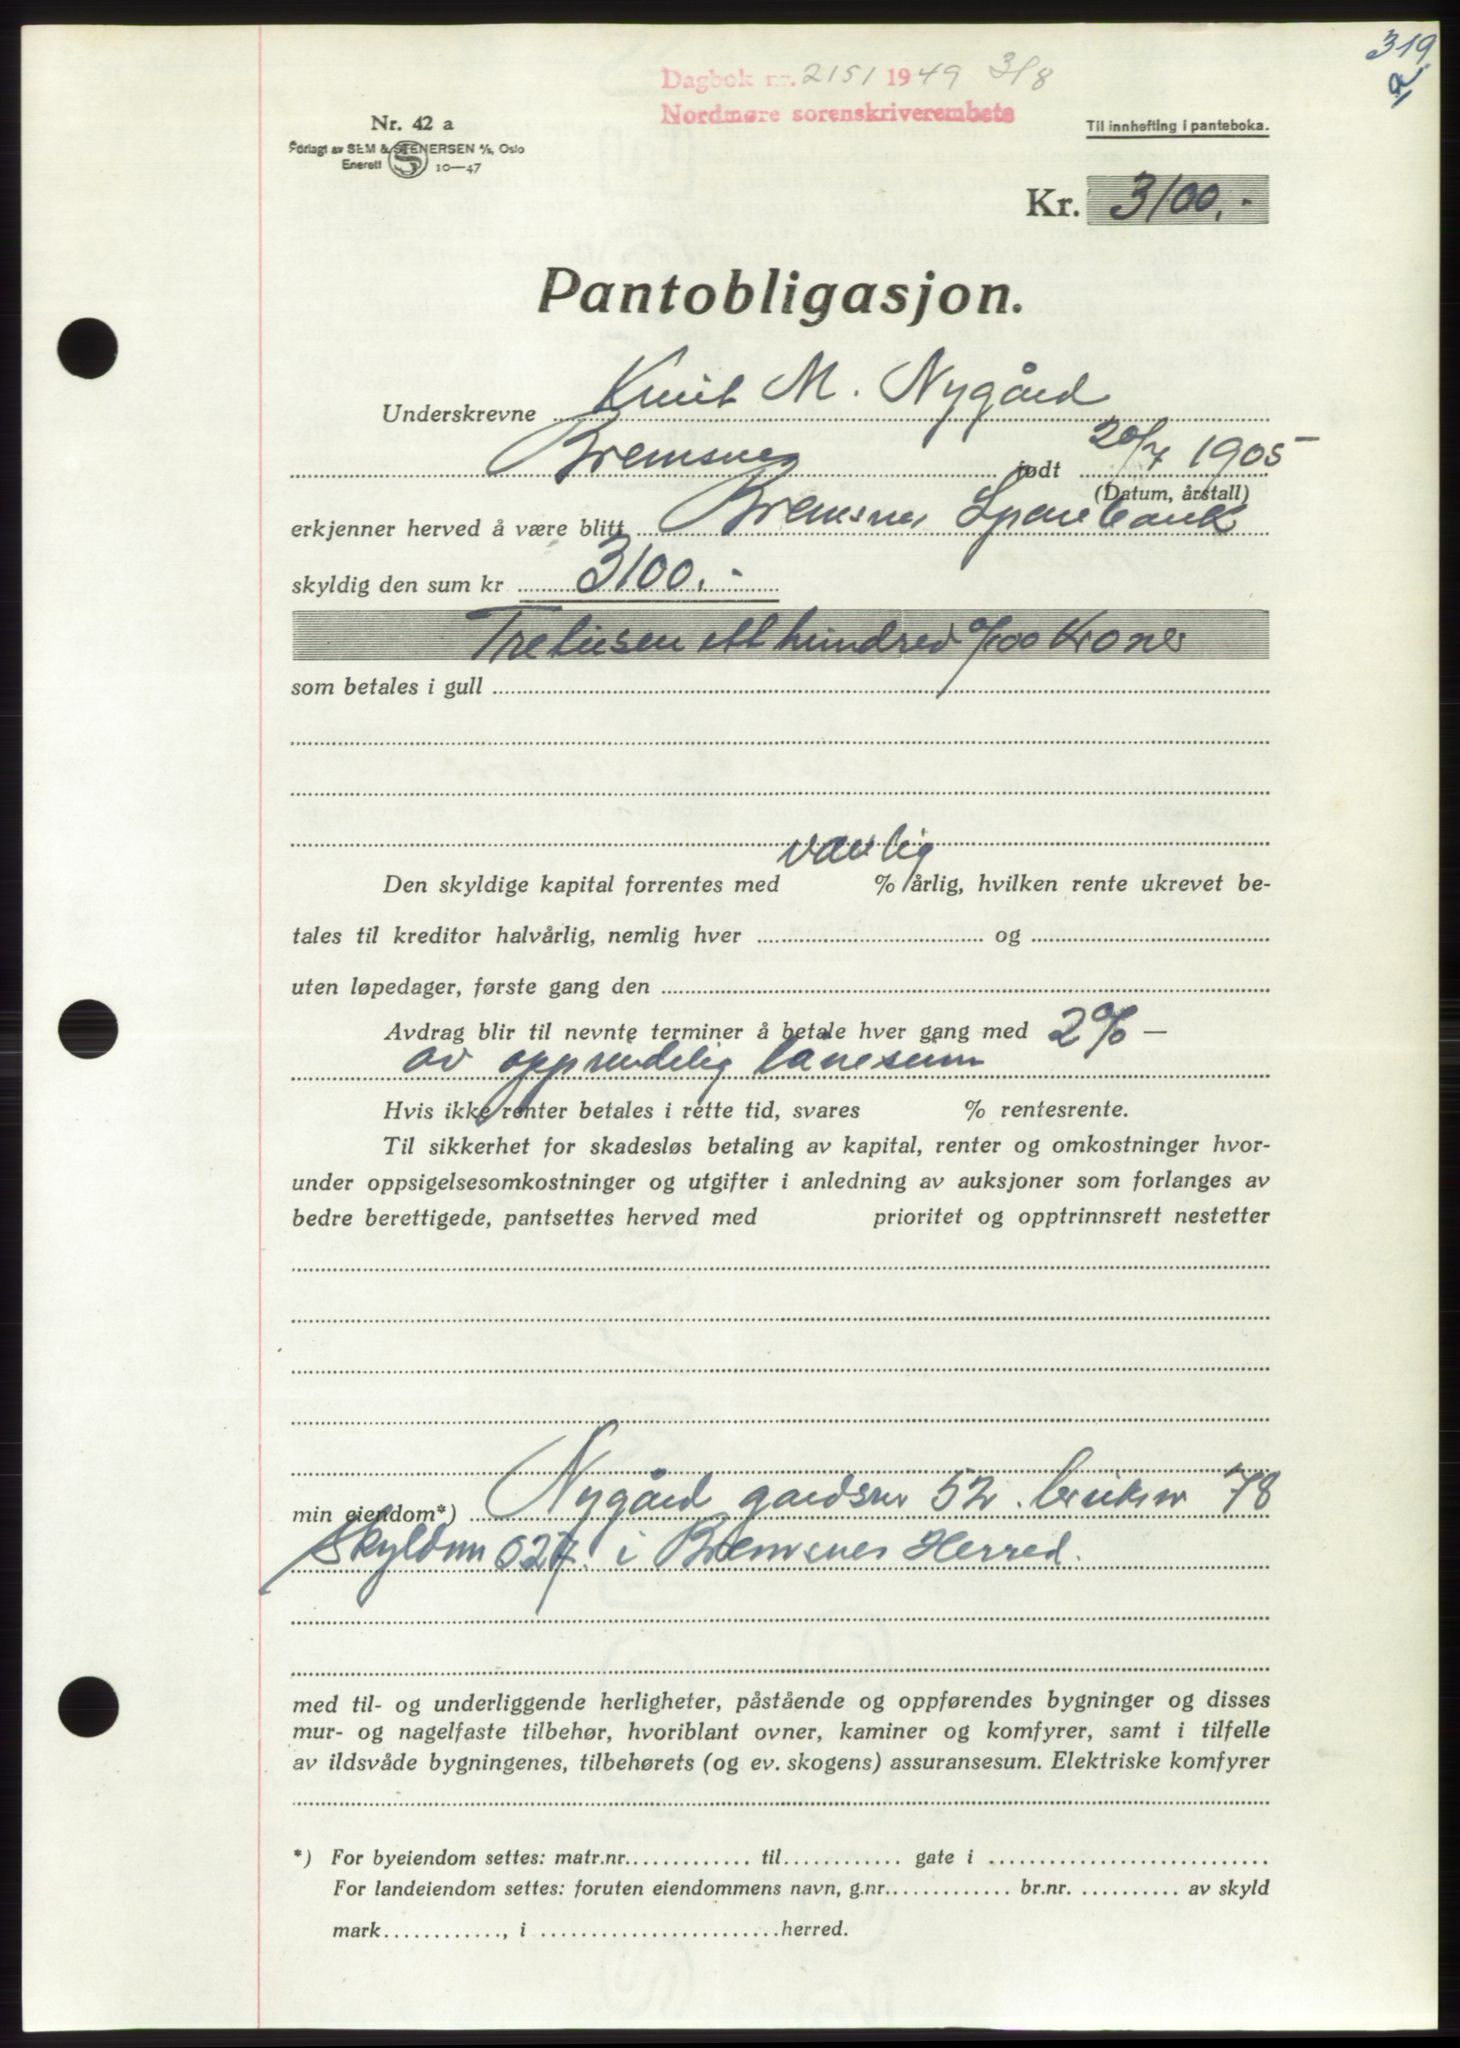 319
Dagbok nr. 2151 1949 3/8
Nordmøre sorenskriverembete
Nr. 42 a
Forlagt av SEM & STENERSEN A/S, Oslo
Enerett S 10—47
Til innhefting i panteboka.
Kr. 3100,-
Pantobligasjon.
Underskrevne Knut M. Nygård
Bremsnes født 20/7 1905
(Datum, årstall)
erkjenner herved å være blitt Bremsnes Sparebank
skyldig den sum kr 3100.-
Tretusen ett hundred 0/00 Kroner
som betales i gull
Den skyldige kapital forrentes med vanlig % årlig, hvilken rente ukrevet be-
tales til kreditor halvårlig, nemlig hver og
uten løpedager, første gang den
Avdrag blir til nevnte terminer å betale hver gang med 2% —
av opprindelig lånesum
Hvis ikke renter betales i rette tid, svares % rentesrente.
Til sikkerhet for skadesløs betaling av kapital, renter og omkostninger hvor-
under oppsigelsesomkostninger og utgifter i anledning av auksjoner som forlanges av
bedre berettigede, pantsettes herved med prioritet og opptrinnsrett nestetter
min eiendom*) Nygård gardsnr 52. bruksnr 78
Skyldmn 027. i Bremsnes Herred.
med til- og underliggende herligheter, påstående og oppførendes bygninger og disses
mur- og nagelfaste tilbehør, hvoriblant ovner, kaminer og komfyrer, samt i tilfelle
av ildsvåde bygningenes, tilbehørets (og ev. skogens) assuransesum. Elektriske komfyrer
*) For byeiendom settes: matr.nr............. til............ gate i ............................
For landeiendom settes: foruten eiendommens navn, g.nr............. br.nr. .......... av skyld
mark............, i ........................herred.